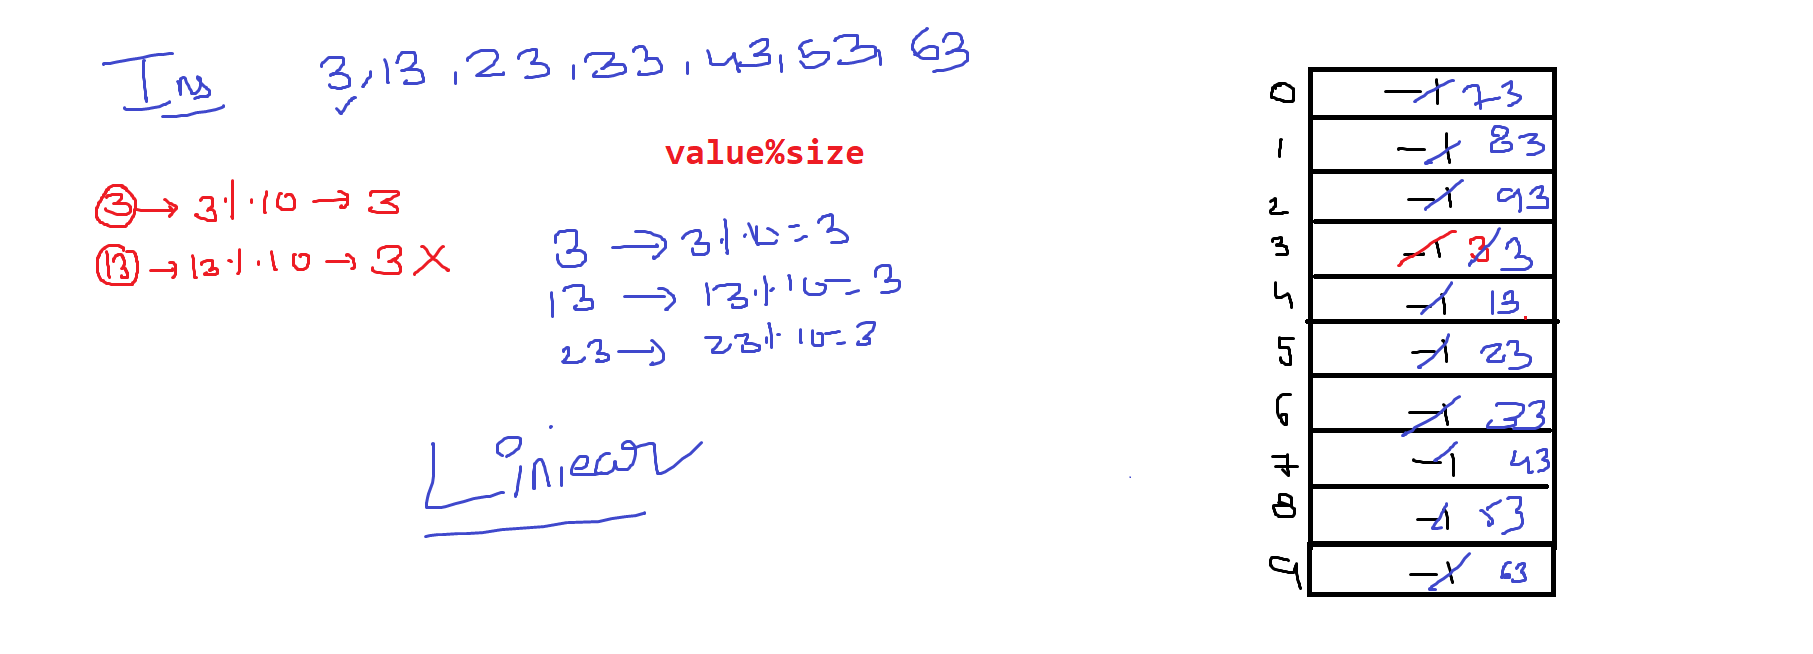 Ins 3, 13, 23, 33, 43, 53, 63
value%size
3 → 3%10 → 3
13 → 13%10 → 3 X
3 → 3%10 = 3
13 → 13%10 = 3
23 → 23%10 = 3
Liniear
0 -1 73
1 -1 83
2 -1 93
3 -1 3 3
4 -1 13
5 -1 23
6 -1 33
7 -1 43
8 -1 53
9 -1 63